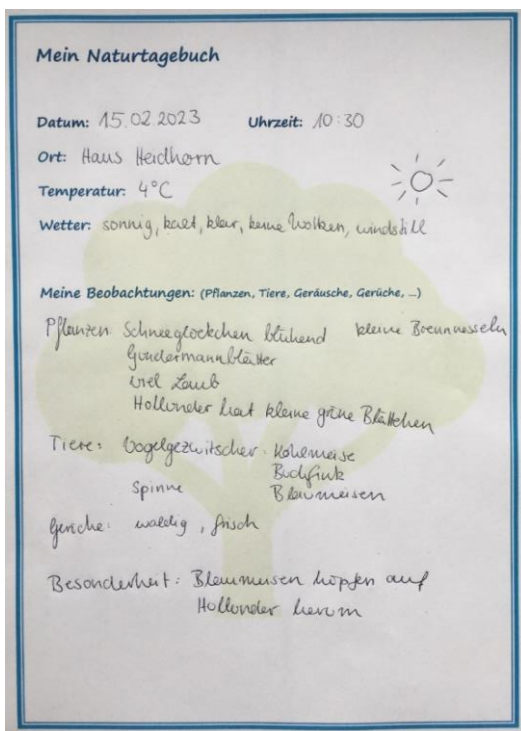 Mein Naturtagebuch
Datum: 15.02.2023 Uhrzeit: 10:30
Ort: Haus Heidhorn
Temperatur: 4°C
Wetter: sonnig, kalt, klar, keine Wolken, windstill
Meine Beobachtungen: (Pflanzen, Tiere, Geräusche, Gerüche, ...)
Pflanzen: Schneeglöckchen blühend kleine Brennnesseln
Gundermannblätter
viel Laub
Hollunder hat kleine grüne Blättchen
Tiere: Vogelgezwitscher: Kohlmeise
Buchfink
Spinne Blaumeisen
Gerüche: waldig, frisch
Besonderheit: Blaumeisen hüpfen auf
Hollunder herum